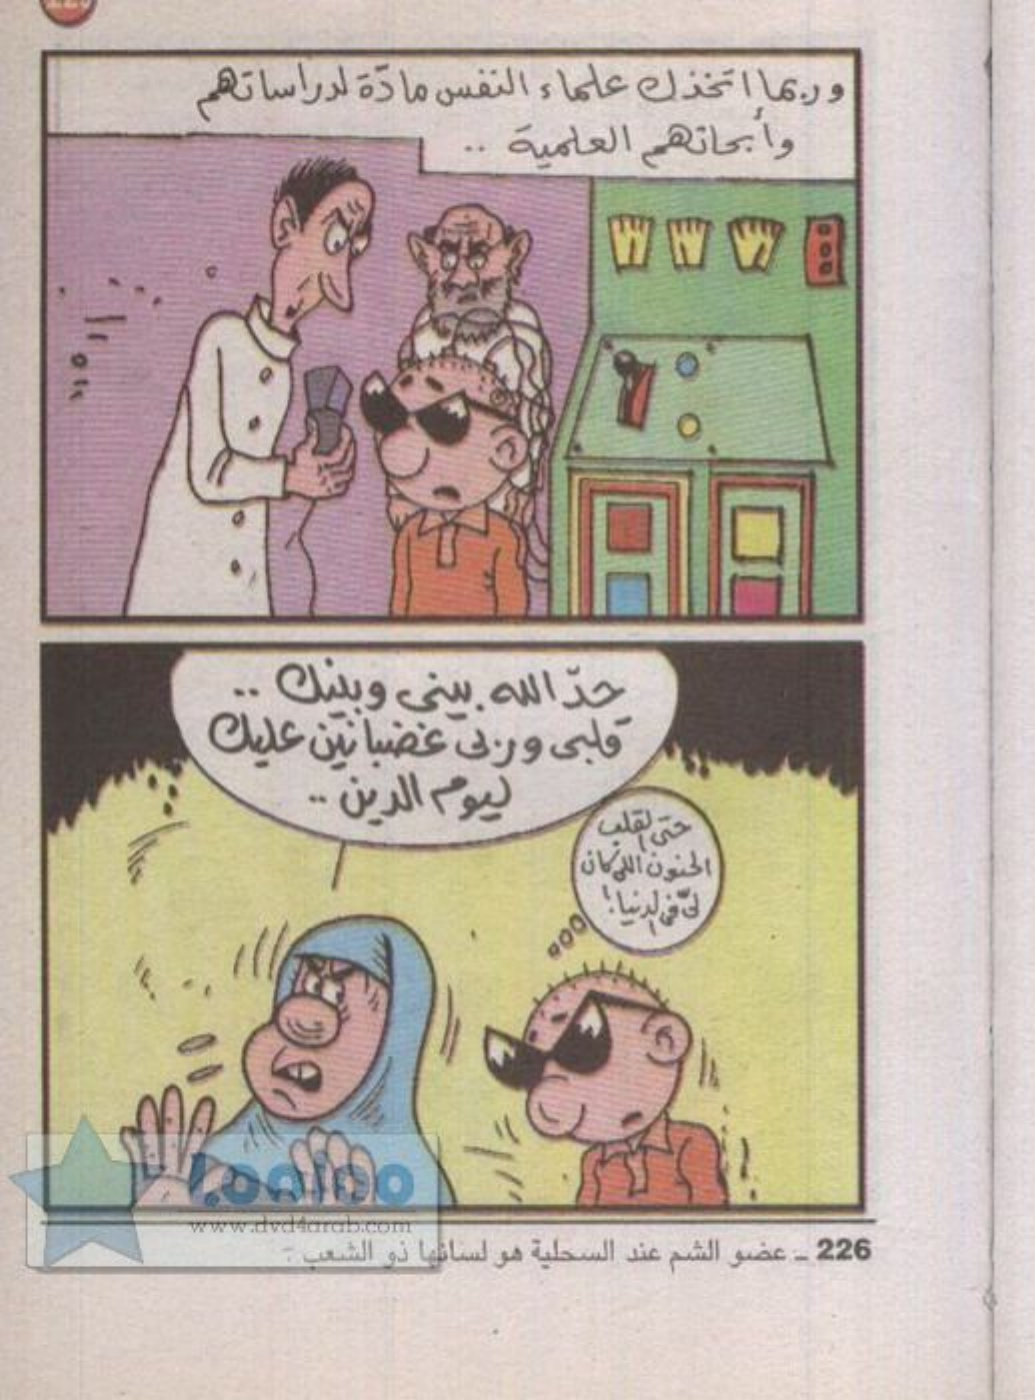 وربما اتخذك علماء النفس مادّة لدراساتهم
وأبحاثهم العلمية ..
حدّ الله بيني وبينك ..
قلبى وربى غضبانين عليك
ليوم الدين ..
حتى القلب
الحنون اللى كان
لىّ فى الدنيا !
www.dvd4arab.com
226 ــ عضو الشم عند السحلية هو لسانها ذو الشعب .